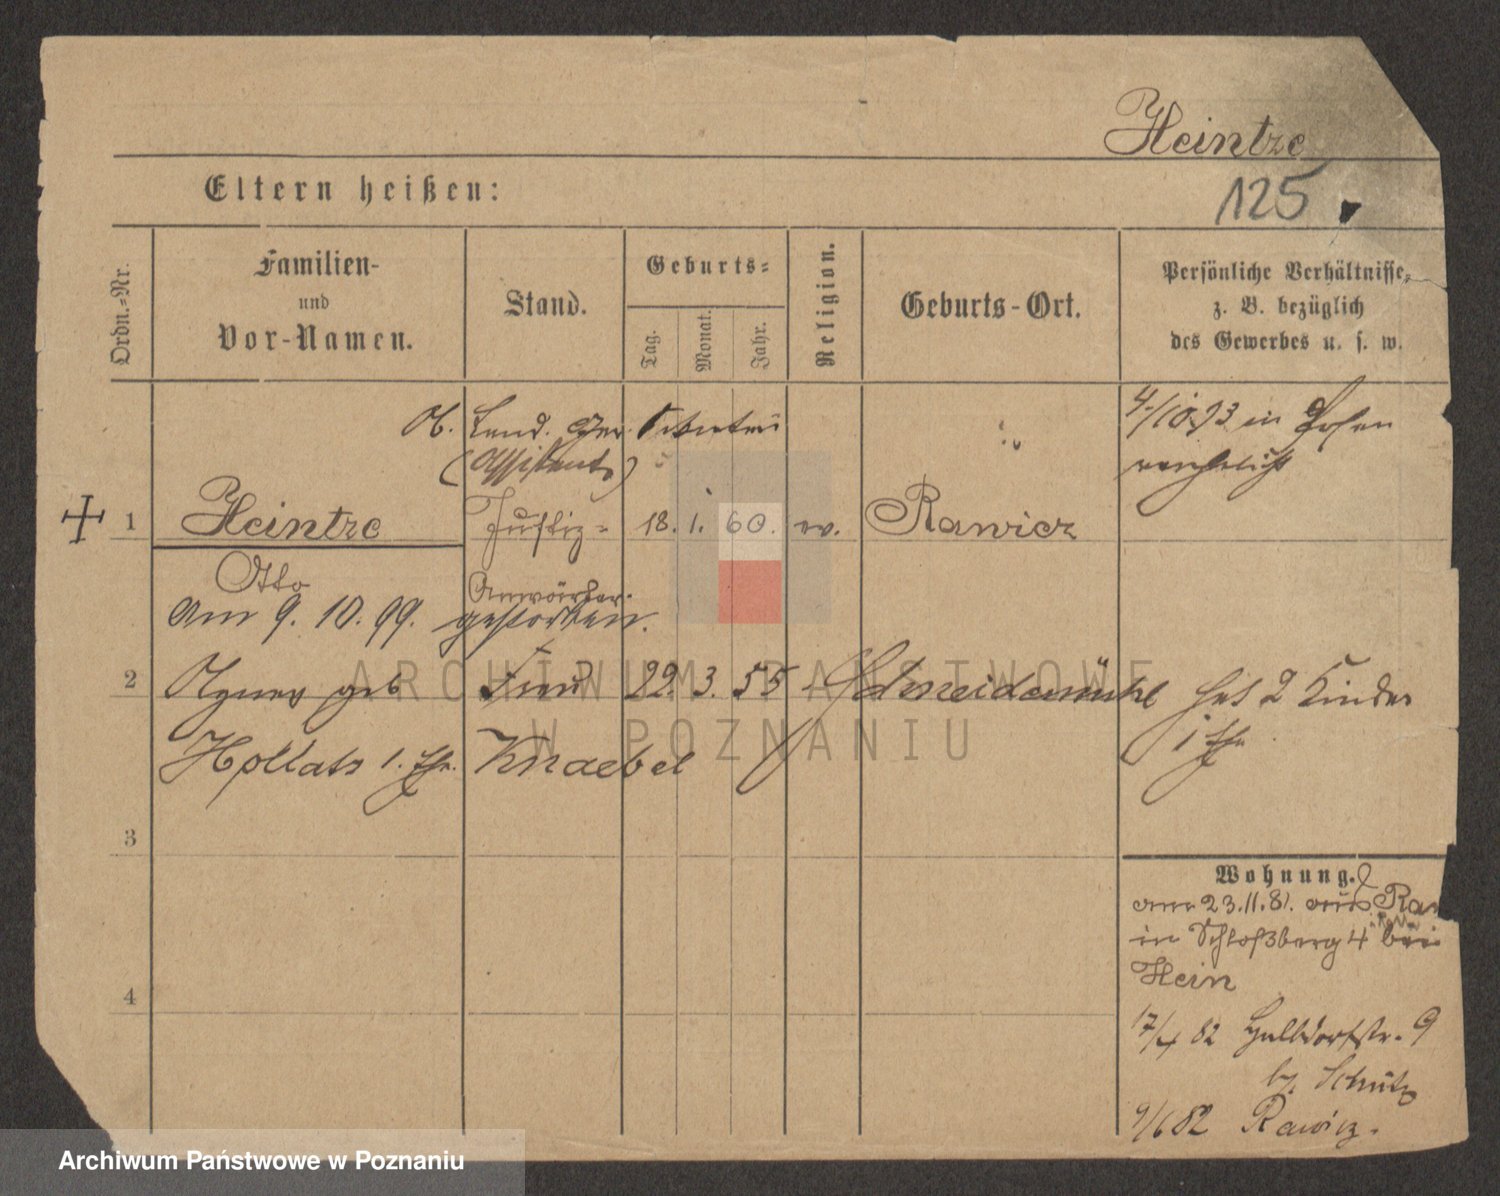 Heintze
125
Eltern heißen:
Ordn.-Nr.
Familien-
und
Vor-Namen.
Stand.
Geburts-
Tag.
Monat.
Jahr.
Religion.
Geburts-Ort.
Persönliche Verhältnisse,
z. B. bezüglich
des Gewerbes u. s. w.
Ob. Land. Ger. Sekretär
(Assistent)
4/10.93 in Posen
verehelicht
1 Heintze Justiz- 18. 1. 60. ev. Rawicz
Otto Anwärter.
am 9. 10. 99. gestorben.
2 Agnes geb Frau 22. 3. 55 Schneidemühl hat 2 Kinder
Hollatz 1. Ehe. Knaebel 1 Ehe
3
Wohnung.
am 23.11.81. aus
in Schloßberg 4 bei
Hein
4
17/4 82 Halbdorfstr. 9
b. Schütz
9/6 82 Rawicz.
ARCHIWUM PAŃSTWOWE
W POZNANIU
Archiwum Państwowe w Poznaniu